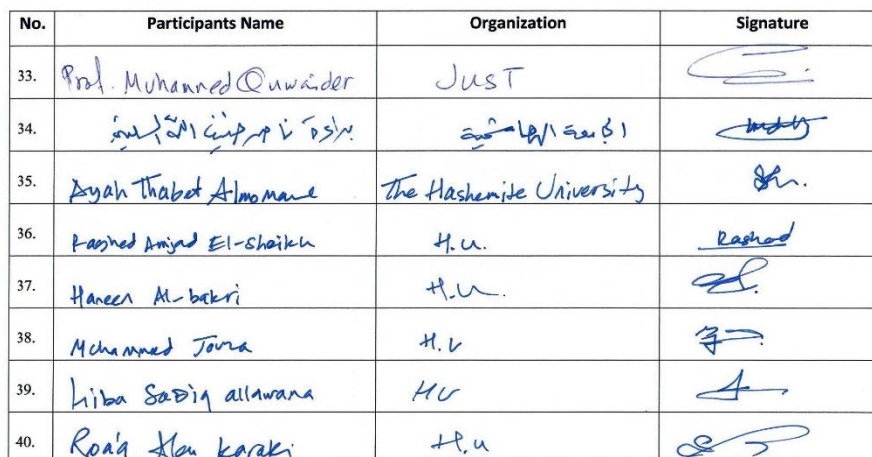 No. Participants Name Organization Signature
33. Prof. Muhanned Quwaider JUST
34. الجامعة الهاشمية
35. Ayah Thabet Almomane The Hashemite University
36. Rashed Amjad El-Sheikh H.U. Rashed
37. Haneen Al-bakri H.U.
38. Mohammed Joura H.U
39. Hiba Sadiq allawana HU
40. Roa'a Abu Karaki H.u